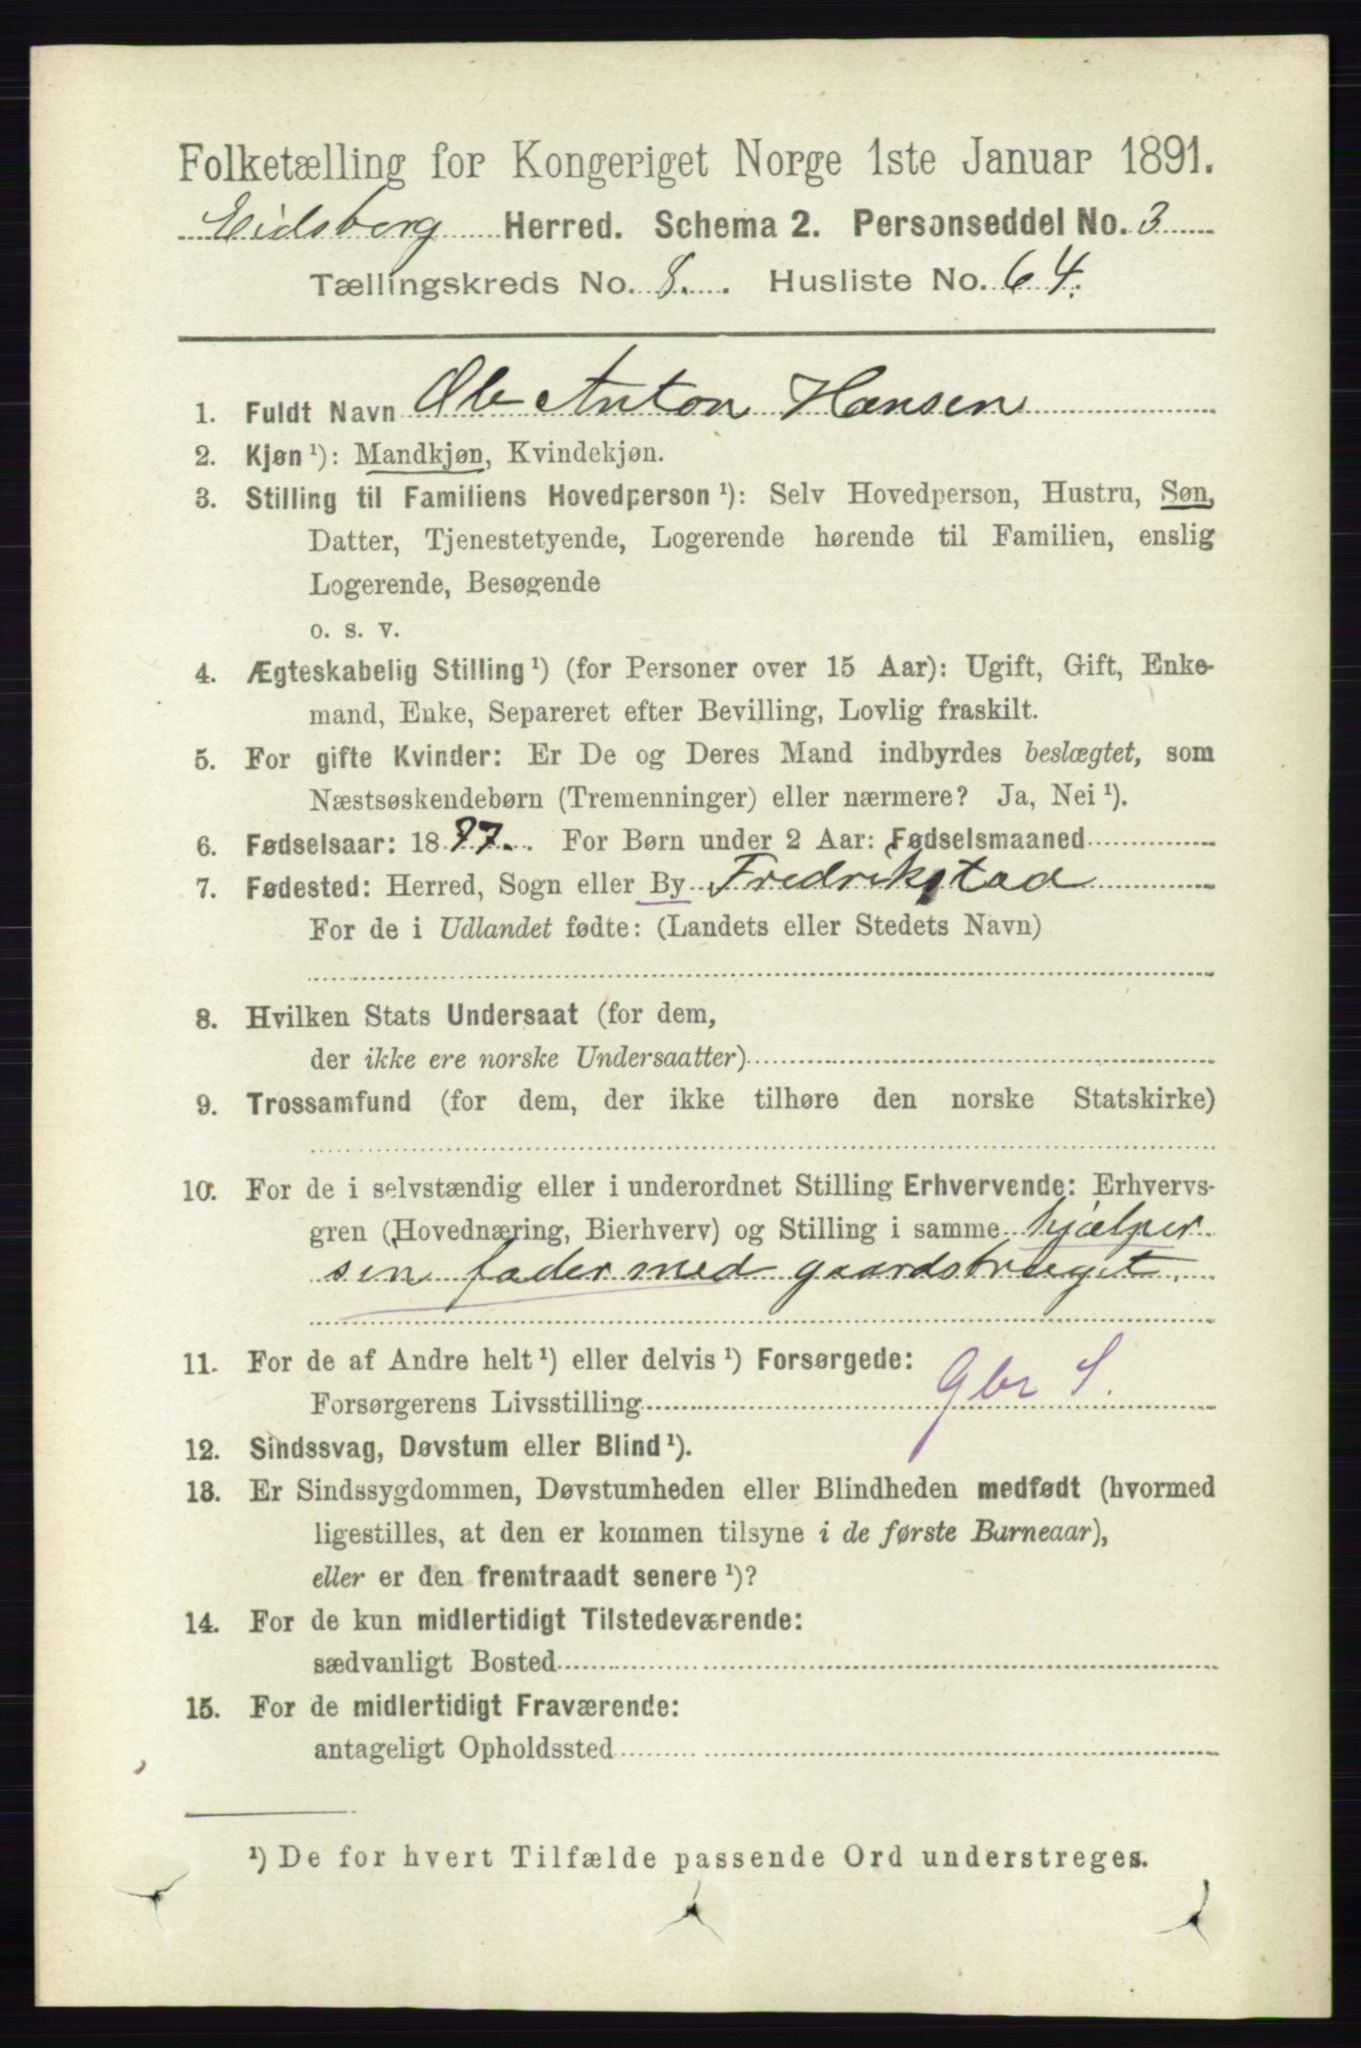 Folketælling for Kongeriget Norge 1ste Januar 1891.
Eidsberg Herred. Schema 2. Personseddel No. 3
Tællingskreds No. 8. Husliste No. 64.
1. Fuldt Navn Ole Anton Hansen
2. Kjøn ¹): Mandkjøn, Kvindekjøn.
3. Stilling til Familiens Hovedperson ¹): Selv Hovedperson, Hustru, Søn,
Datter, Tjenestetyende, Logerende hørende til Familien, enslig
Logerende, Besøgende
o. s. v.
4. Ægteskabelig Stilling ¹) (for Personer over 15 Aar): Ugift, Gift, Enke-
mand, Enke, Separeret efter Bevilling, Lovlig fraskilt.
5. For gifte Kvinder: Er De og Deres Mand indbyrdes beslægtet, som
Næstsøskendebørn (Tremenninger) eller nærmere? Ja, Nei ¹).
6. Fødselsaar: 18 For Børn under 2 Aar: Fødselsmaaned
7. Fødested: Herred, Sogn eller By Fredrikstad
For de i Udlandet fødte: (Landets eller Stedets Navn)
8. Hvilken Stats Undersaat (for dem,
der ikke ere norske Undersaatter)
9. Trossamfund (for dem, der ikke tilhøre den norske Statskirke)
10. For de i selvstændig eller i underordnet Stilling Erhvervende: Erhvervs-
gren (Hovednæring, Bierhverv) og Stilling i samme hjælper
sin fader med gaardsbruget.
11. For de af Andre helt ¹) eller delvis ¹) Forsørgede:
Forsørgerens Livsstilling Gbr S.
12. Sindssvag, Døvstum eller Blind ¹).
13. Er Sindssygdommen, Døvstumheden eller Blindheden medfødt (hvormed
ligestilles, at den er kommen tilsyne i de første Barneaar),
eller er den fremtraadt senere ¹)?
14. For de kun midlertidigt Tilstedeværende:
sædvanligt Bosted
15. For de midlertidigt Fraværende:
antageligt Opholdssted
¹) De for hvert Tilfælde passende Ord understreges.